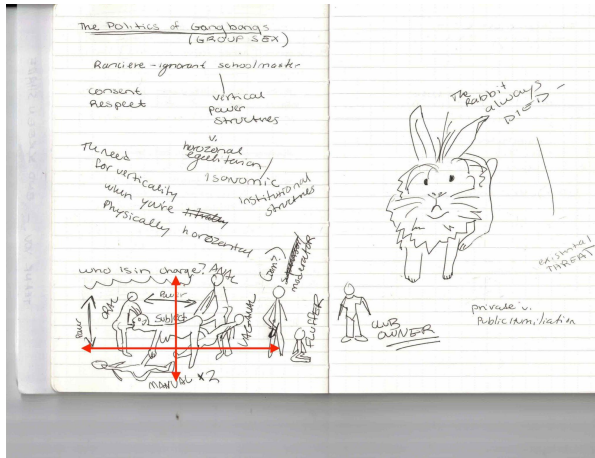 The Politics of Gangbangs
(GROUP SEX)
Ranciere - ignorant schoolmaster
consent
Respect
vertical
power
structures
v.
horozonal
egalitarian/
isonomic
institutional
structures
The need
for verticality
when you're
physically horozontal
who is in charge?
ANAL
moderator
Power
Power
ORAL
Subject
VAGINAL
FLUFFER
MANUAL x2
The
Rabbit
always
DIED -
existential
THREAT
CLUB
OWNER
private v.
Public Humiliation